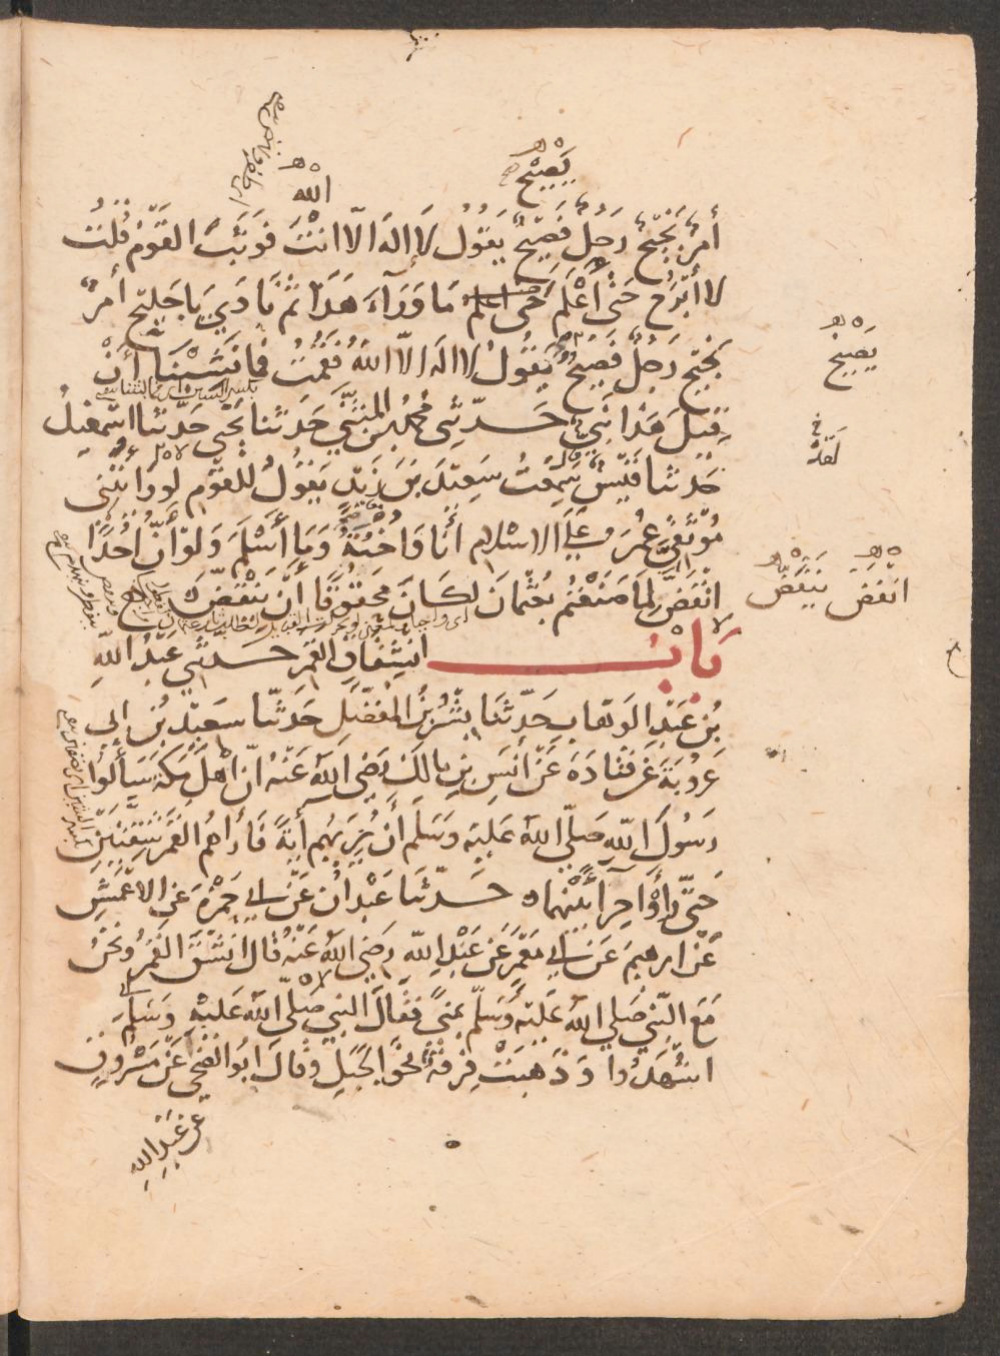 يَصِيحُ
الله
أَمْرٌ نَجِيحٌ رَجُلٌ فَصِيحٌ يَقُولُ لَا إِلَهَ إِلَّا أَنْتَ فَوَثَبَ القَوْمُ قُلْتُ
لا أَبْرَحُ حَتَّى أَعْلَمَ حتى اعلم مَا وَرَآءَ هَذَا ثُمَّ نَادَى يَا جَلِيحْ أَمْرٌ
نَجِيحٌ رَجُلٌ فَصِيحٌ يَقُولُ لا اله الّا اللهُ فَقُمْتُ فَمَا نَشِبْنَا أَنْ
قِيلَ هَذَا نَبِيٌّ حَدَّثَنِي مُحَمَّدُ بنُ المُثَنَّى حَدثنا يَحْيَى حَدَّثَنَا اسْمعِيلُ
حَدثنا قَيْسٌ سَمِعْتُ سَعِيدَ بنَ زَيْدٍ يَقُولُ لِلقَوْمِ لَو رَأَيْتُنِي
مُوْثِقِي عُمَرُ عَلَى الاسْلامِ أَنَا وَأُخْتُهُ وَمَا أَسْلَمَ وَلَوْ أَنَّ أُحُدًا
انْقَضَّ لِمَا صَنَعْتُمْ بِعُثْمَانَ لَكَانَ مَحْقُوقًا أَنْ يَنْقَضَّ
بَابُ انْشِقَاقِ القَمَرِ حَدَّثَنِي عَبْدُ اللهِ
بْنُ عَبْدِ الوَهَّابِ حَدَّثَنَا بِشْرُ بْنُ المُفَضَّلِ حَدَّثَنَا سَعِيدُ بْنُ أبي
عَرُوبَةَ عَنْ قَتَادَةَ عَنْ أَنَسِ بنِ مالك رَضِيَ اللهُ عَنْهُ أنَّ أَهْلَ مَكَّةَ سَأَلُوا
رَسُولَ اللهِ صَلَّى اللهُ عَلَيْهِ وَسَلَّمَ أَنْ يُرِيَهُمْ آيَةً فَأَرَاهُمُ القَمَرَ شِقَّتَيْنِ
حَتَّى رَأَوْا حِرَاءً بَيْنَهُمَا حَدَّثَنَا عَبْدَانُ عَنْ أبي حَمْزَةَ عَنِ الأَعْمَشِ
عَنْ ابرهيم عَنْ أبي مَعْمَرٍ عَنْ عَبْدِ اللهِ رَضِيَ اللهُ عَنْهُ قَالَ انْشَقَّ القَمَرُ وَنَحْنُ
مَعَ النَّبِيِّ صَلَّى اللهُ عَلَيْهِ وَسَلَّمَ بِمِنًى فَقَالَ النَّبِي صَلَّى اللهُ عَلَيْهِ وَسَلَّمَ
اشْهَدُوا وَذَهَبَتْ فِرْقَةٌ نَحْوَ الجَبَلِ وَقَالَ أَبُو الضُّحَى عَنْ مَسْرُوقٍ
عَنْ عَبْدِ اللهِ
يَصِيحُ
انْفَضَّ يَنْفَضَّ